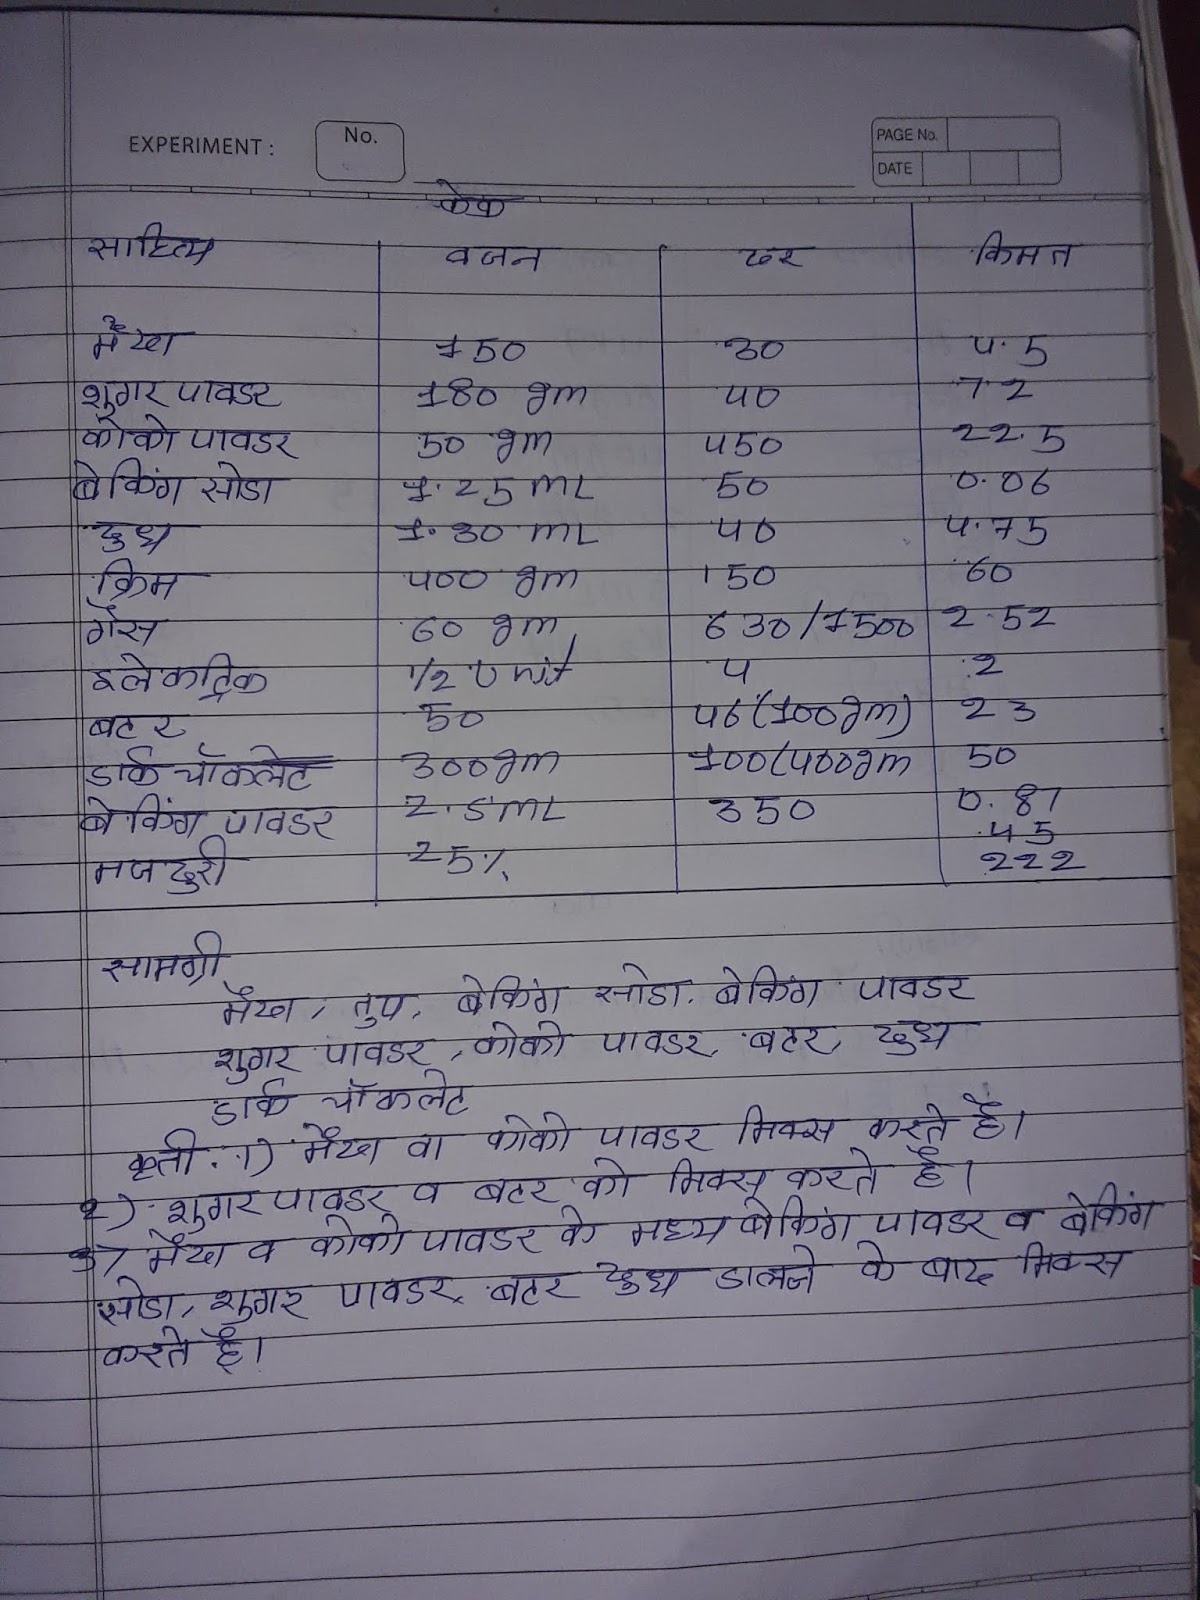 EXPERIMENT : No. PAGE No.
DATE
केक
साहित्य वजन दर किमत
मैदा 150 30 4.5
शुगर पावडर 180 gm 40 7.2
कोको पावडर 50 gm 450 22.5
बेकिंग सोडा 1.25 ML 50 0.06
दुध 1.30 ML 40 4.75
क्रिम 400 gm 150 60
गॅस 60 gm 630/1500 2.52
इलेकट्रिक 1/2 Unit 4 2
बटर 50 46(100gm) 23
डार्क चॉकलेट 300gm 100(400gm 50
बेकिंग पावडर 2.5ML 350 0.87
45
मजदुरी 25% 222
सामग्री
मैदा, तुप, बेकिंग सोडा. बेकिंग पावडर
शुगर पावडर, कोको पावडर, बटर, दुध
डार्क चॉकलेट
कृती. 1) मैदा वा कोको पावडर मिक्स करते है।
2) शुगर पावडर व बटर को मिक्स करते है।
3) मैदा व कोको पावडर के मध्य बेकिंग पावडर व बेकिंग
सोडा, शुगर पावडर, बटर दुध डालने के बाद मिक्स
करते है।